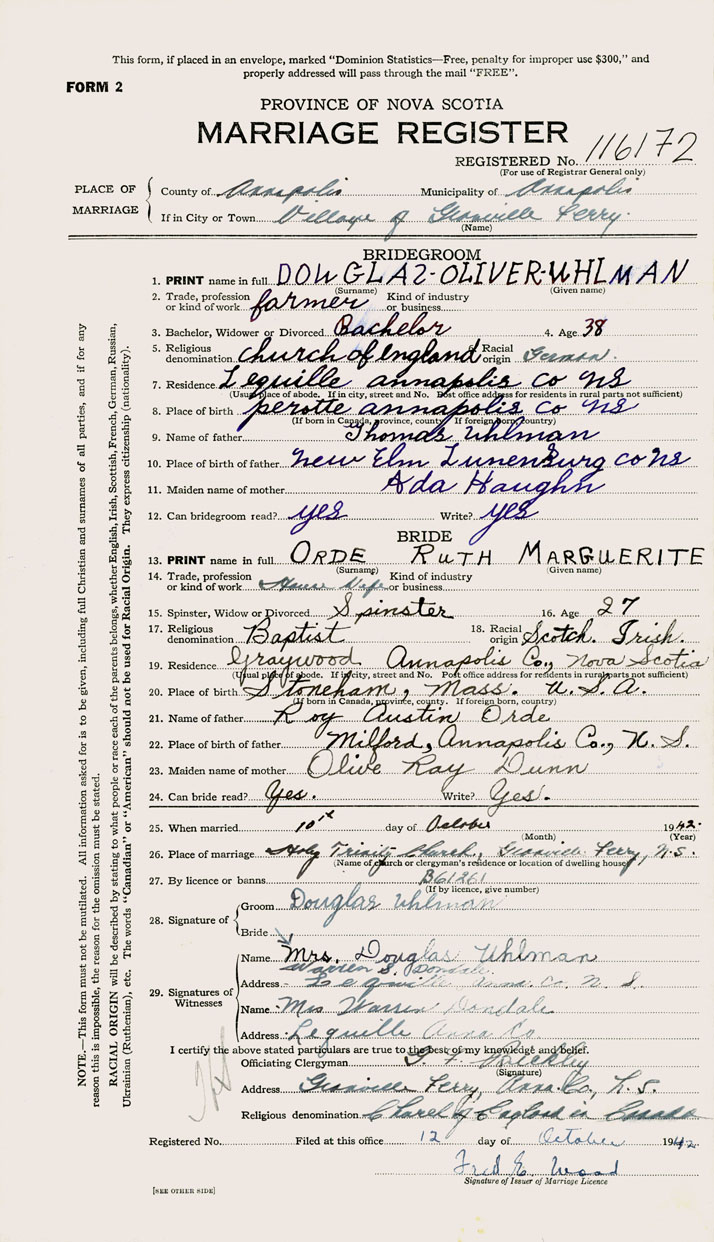 This form, if placed in an envelope, marked "Dominion Statistics—Free, penalty for improper use $300," and
properly addressed will pass through the mail "FREE".
FORM 2
PROVINCE OF NOVA SCOTIA
MARRIAGE REGISTER
REGISTERED No. 116172
(For use of Registrar General only)
PLACE OF MARRIAGE
County of Annapolis Municipality of Annapolis
If in City or Town Village of Granville Ferry.
(Name)
BRIDEGROOM
1. PRINT name in full DOUGLAS-OLIVER-UHLMAN
(Surname) (Given name)
2. Trade, profession or kind of work farmer Kind of industry or business
3. Bachelor, Widower or Divorced Bachelor 4. Age 38
5. Religious denomination church of england 6. Racial origin German.
7. Residence Lequille annapolis co NS
(Usual place of abode. If in city, street and No. Post office address for residents in rural parts not sufficient)
8. Place of birth perotte annapolis co NS
(If born in Canada, province, county. If foreign born, country)
9. Name of father Thomas Uhlman
10. Place of birth of father new Elm Lunenburg co NS
11. Maiden name of mother Ada Haughn
12. Can bridegroom read? yes Write? yes
BRIDE
13. PRINT name in full ORDE RUTH MARGUERITE
(Surname) (Given name)
14. Trade, profession or kind of work House Wife Kind of industry or business
15. Spinster, Widow or Divorced Spinster 16. Age 27
17. Religious denomination Baptist 18. Racial origin Scotch. Irish.
19. Residence Graywood Annapolis Co., Nova Scotia
(Usual place of abode. If in city, street and No. Post office address for residents in rural parts not sufficient)
20. Place of birth Stoneham, Mass. U.S.A.
(If born in Canada, province, county. If foreign born, country)
21. Name of father Roy Austin Orde
22. Place of birth of father Milford, Annapolis Co., N.S.
23. Maiden name of mother Olive Ray Dunn
24. Can bride read? Yes. Write? Yes.
25. When married 10th day of October 1942.
(Month) (Year)
26. Place of marriage Holy Trinity Church, Granville Ferry, N.S.
(Name of church or clergyman's residence or location of dwelling house)
27. By licence or banns B61261
(If by licence, give number)
28. Signature of
Groom Douglas Uhlman
Bride
29. Signatures of Witnesses
Name Mrs. Douglas Uhlman
Warren S. Dondale
Address Lequille Anna Co. N.S.
Name Mrs Warren Dondale
Address Lequille Anna Co
I certify the above stated particulars are true to the best of my knowledge and belief.
Officiating Clergyman
(Signature)
Address Granville Ferry, Anna Co, N.S.
Religious denomination Church of England in Canada
Registered No. Filed at this office 12 day of October 1942.
Fred E. Wood
Signature of Issuer of Marriage Licence
[SEE OTHER SIDE]
NOTE.—This form must not be mutilated. All information asked for is to be given, including full Christian and surnames of all parties, and if for any
reason this is impossible, the reason for the omission must be stated.
RACIAL ORIGIN will be described by stating to what people or race each of the parents belongs, whether English, Irish, Scottish, French, German, Russian,
Ukrainian (Ruthenian), etc. The words "Canadian" or "American" should not be used for Racial Origin. They express citizenship (nationality).